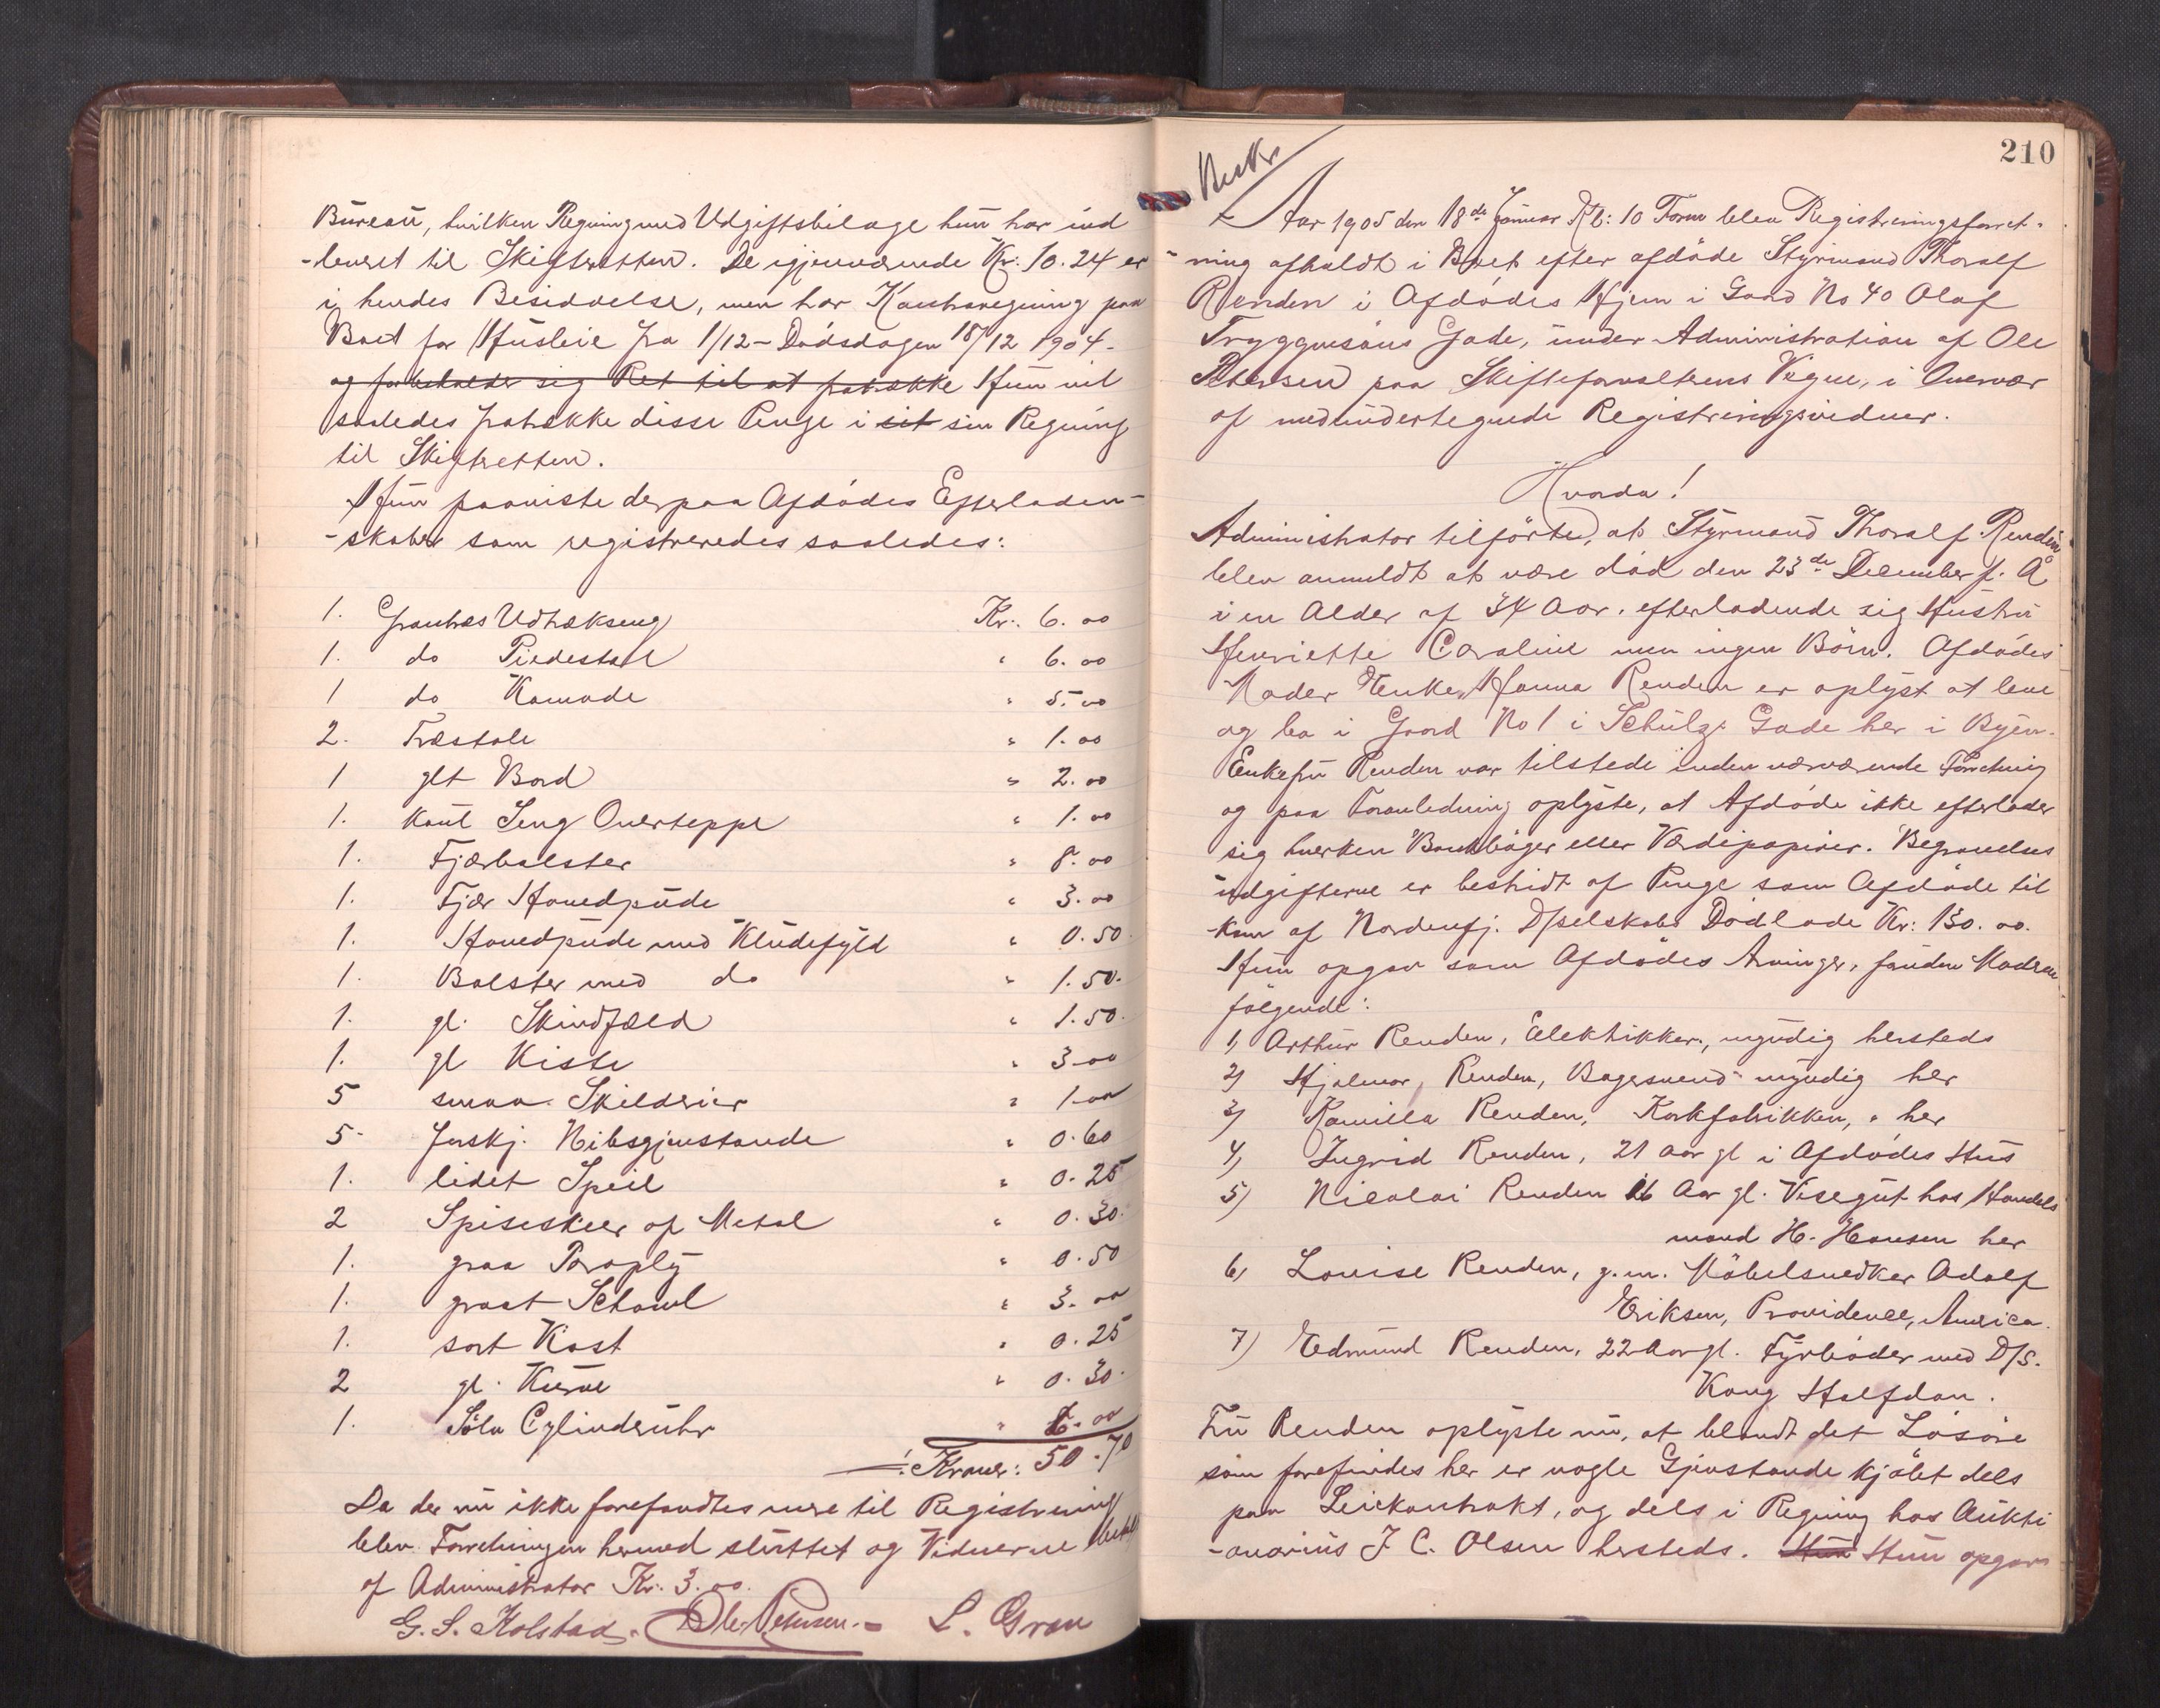 Büreaü, hvilken Regning med Udgiftsbilage hun har ind
-leveret til Skifteretten. De igjenværende Kr: 10.24 er
i hendes Besiddelse, men har Kontraregning paa
Boet for Husleie fra 1/12 - Dødsdagen 18/12 1904 -
og forbeholder sig Ret til at fratrække Hun vil
saaledes fratrække disse Penge i sit sin Regning
til Skifteretten.
Hun paaviste derpaa Afdødes Efterladen-
-skaber som registreredes saaledes:
1. Grantræs Udtrækseng Kr: 6.00
1. do Piedestal " 6.00
1 do Komode " 5.00
2. Træstole " 1.00
1 glt Bord " 2.00
1. Seng Overteppe " 1.00
1. Fjærbolster " 8.00
1. Fjær Hovedpude " 3.00
1. Hovedpude med Kludefyld " 0.50
1. Bolster med do " 1.50.
1. gl. Skindfæld " 1.50.
1. gl Kiste " 3.00
5 smaa Skilderier " 1.00
5 forskj. Nibsgjenstande " 0.60
1. lidet Speil " 0.25
2 Spiseskeer af Metal " 0.30.
1. graa Paraply " 0.50
1. graat Schawl " 3.00
1. sort Kost " 0.25
2 gl. Kurve " 0.30.
1. Sølv Cylinderuhr " 6.00
: Kroner: 50.70
Da der nu ikke forefandtes mere til Registrering
blev Forretningen hermed sluttet og Vidnerne betalt
af Administrator Kr: 3.00.
G. S. Kolstad. Ole Petersen. - L. Gran
210
Aar 1905 den 18de Januar Kl: 10 Form blev Registreringsforret-
-ning afholdt i Boet efter afdøde Styrmand Thoralf
Renden i Afdødes Hjem i Gaard No 40 Olaf
Tryggvesøns Gade, under Administration af Ole
Petersen paa Skifteforvalterens Vegne, i Overvær
af medundertegnede Registreringsvidner.
Hvorda!
Administrator tilførte, at Styrmand Thoralf Renden
blev anmeldt at være død den 23de December f. A
i en Alder af 34 Aar. efterladende sig Hustru
Henriette Caroline men ingen Børn. Afdødes
Moder Enke Hanna Renden er oplyst at leve
og bo i Gaard No 1 i Schulz. Gade her i Byen.
Enkefru Renden var tilstede under nærværende Forretning
og paa Foranledning oplyste, at Afdøde ikke efterlader
sig hverken Bankbøger eller Værdipapirer. Begravelses
udgifterne er bestridt af Penge som Afdøde til
-kom af Nordenfj. D/selskabs Dødlade Kr: 130.00.
Hun opgav som Afdødes Arvinger, foruden Moderen
følgende:
1, Arthur Renden, Elektrikker, myndig hersteds
2) Hjalmar Renden, Bagersvend myndig her
3) Kamilla Renden, Korkfabrikken, " her
4, Ingrid Renden, 21 Aar gl i Afdødes Hus
5) Nicolai Renden 16 Aar gl. Visegut hos Handels
mand H. Hansen her
6, Louise Renden, g.m. Møbelsnedker Adolf
Eriksen, Providence, America.
7) Edmund Renden, 22 Aar gl. Fyrbøder med D/S.
Kong Halfdan.
Fru Renden oplyste nu, at blandt det Løsøre
som forefindes her er nogle Gjenstande kjøbt dels
paa Leiekontrakt, og dels i Regning hos Aukti
-onarius J C. Olsen hersteds. Hun Hun opgav